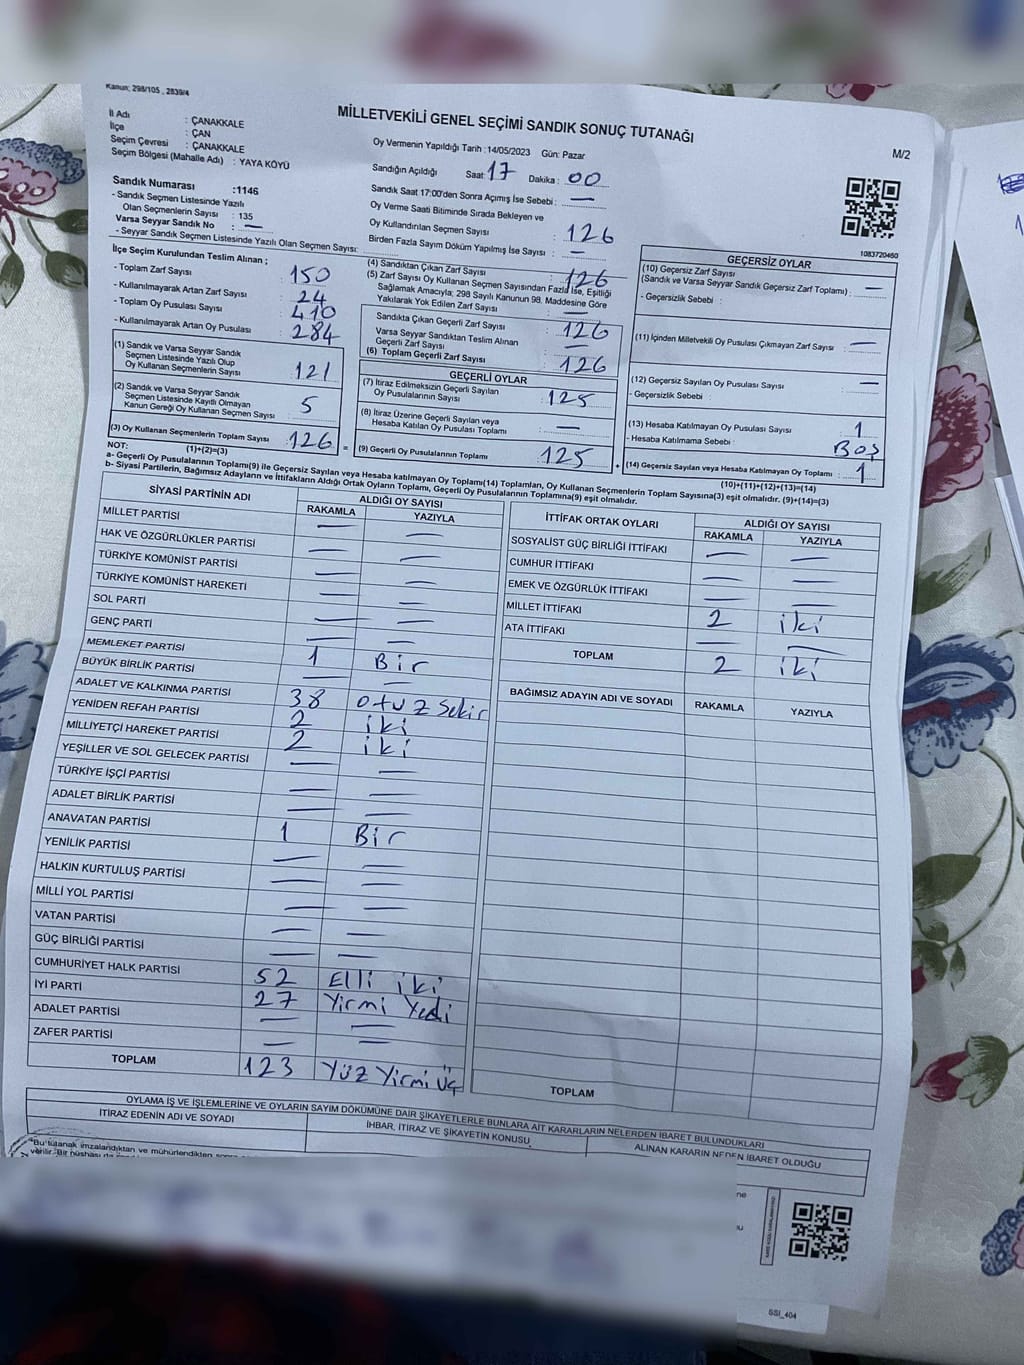 Kanun; 298/105 , 2839/4
MİLLETVEKİLİ GENEL SEÇİMİ SANDIK SONUÇ TUTANAĞI
M/2
İl Adı : ÇANAKKALE
İlçe : ÇAN
Seçim Çevresi : ÇANAKKALE
Seçim Bölgesi (Mahalle Adı) : YAYA KÖYÜ
Oy Vermenin Yapıldığı Tarih :14/05/2023 Gün: Pazar
Sandığın Açıldığı Saat: 17 Dakika : 00
Sandık Saat 17:00'den Sonra Açımış İse Sebebi : —
Oy Verme Saati Bitiminde Sırada Bekleyen ve
Oy Kullandırılan Seçmen Sayısı : 126
Birden Fazla Sayım Döküm Yapılmış İse Sayısı : —
Sandık Numarası :1146
- Sandık Seçmen Listesinde Yazılı
Olan Seçmenlerin Sayısı : 135
Varsa Seyyar Sandık No : —
- Seyyar Sandık Seçmen Listesinde Yazılı Olan Seçmen Sayısı:
1083720460
İlçe Seçim Kurulundan Teslim Alınan ;
- Toplam Zarf Sayısı : 150
- Kullanılmayarak Artan Zarf Sayısı : 24
- Toplam Oy Pusulası Sayısı : 410
- Kullanılmayarak Artan Oy Pusulası : 284
(1) Sandık ve Varsa Seyyar Sandık
Seçmen Listesinde Yazılı Olup
Oy Kullanan Seçmenlerin Sayısı : 121
(2) Sandık ve Varsa Seyyar Sandık
Seçmen Listesinde Kayıtlı Olmayan
Kanun Gereği Oy Kullanan Seçmen Sayısı : 5
(3) Oy Kullanan Seçmenlerin Toplam Sayısı : 126
(1)+(2)=(3)
(4) Sandıktan Çıkan Zarf Sayısı : 126
(5) Zarf Sayısı Oy Kullanan Seçmen Sayısından Fazla İse, Eşitliği
Sağlamak Amacıyla; 298 Sayılı Kanunun 98. Maddesine Göre
Yakılarak Yok Edilen Zarf Sayısı : —
Sandıkta Çıkan Geçerli Zarf Sayısı : 126
Varsa Seyyar Sandıktan Teslim Alınan
Geçerli Zarf Sayısı : —
(6) Toplam Geçerli Zarf Sayısı : 126
GEÇERLİ OYLAR
(7) İtiraz Edilmeksizin Geçerli Sayılan
Oy Pusulalarının Sayısı : 125
(8) İtiraz Üzerine Geçerli Sayılan veya
Hesaba Katılan Oy Pusulası Toplamı : —
= (9) Geçerli Oy Pusulalarının Toplamı : 125
GEÇERSİZ OYLAR
(10) Geçersiz Zarf Sayısı
(Sandık ve Varsa Seyyar Sandık Geçersiz Zarf Toplamı) : —
- Geçersizlik Sebebi :
(11) İçinden Milletvekili Oy Pusulası Çıkmayan Zarf Sayısı : —
(12) Geçersiz Sayılan Oy Pusulası Sayısı : —
- Geçersizlik Sebebi :
(13) Hesaba Katılmayan Oy Pusulası Sayısı : 1
- Hesaba Katılmama Sebebi : Boş
+ (14) Geçersiz Sayılan veya Hesaba Katılmayan Oy Toplamı : 1
(10)+(11)+(12)+(13)=(14)
NOT:
a- Geçerli Oy Pusulalarının Toplamı(9) ile Geçersiz Sayılan veya Hesaba katılmayan Oy Toplamı(14) Toplamları, Oy Kullanan Seçmenlerin Toplam Sayısına(3) eşit olmalıdır. (9)+(14)=(3)
b- Siyasi Partilerin, Bağımsız Adayların ve İttifakların Aldığı Ortak Oyların Toplamı, Geçerli Oy Pusulalarının Toplamına(9) eşit olmalıdır.
SİYASİ PARTİNİN ADI ALDIĞI OY SAYISI
RAKAMLA YAZIYLA
MİLLET PARTİSİ — —
HAK VE ÖZGÜRLÜKLER PARTİSİ — —
TÜRKİYE KOMÜNİST PARTİSİ — —
TÜRKİYE KOMÜNİST HAREKETİ — —
SOL PARTİ — —
GENÇ PARTİ — —
MEMLEKET PARTİSİ 1 Bir
BÜYÜK BİRLİK PARTİSİ — —
ADALET VE KALKINMA PARTİSİ 38 otuz Sekiz
YENİDEN REFAH PARTİSİ 2 iki
MİLLİYETÇİ HAREKET PARTİSİ 2 iki
YEŞİLLER VE SOL GELECEK PARTİSİ — —
TÜRKİYE İŞÇİ PARTİSİ — —
ADALET BİRLİK PARTİSİ — —
ANAVATAN PARTİSİ 1 Bir
YENİLİK PARTİSİ — —
HALKIN KURTULUŞ PARTİSİ — —
MİLLİ YOL PARTİSİ — —
VATAN PARTİSİ — —
GÜÇ BİRLİĞİ PARTİSİ — —
CUMHURİYET HALK PARTİSİ 52 Elli iki
İYİ PARTİ 27 Yirmi Yedi
ADALET PARTİSİ — —
ZAFER PARTİSİ — —
TOPLAM 123 Yüz Yirmi Üç
İTTİFAK ORTAK OYLARI ALDIĞI OY SAYISI
RAKAMLA YAZIYLA
SOSYALİST GÜÇ BİRLİĞİ İTTİFAKI — —
CUMHUR İTTİFAKI — —
EMEK VE ÖZGÜRLÜK İTTİFAKI — —
MİLLET İTTİFAKI 2 iki
ATA İTTİFAKI — —
TOPLAM 2 iki
BAĞIMSIZ ADAYIN ADI VE SOYADI RAKAMLA YAZIYLA
TOPLAM
OYLAMA İŞ VE İŞLEMLERİNE VE OYLARIN SAYIM DÖKÜMÜNE DAİR ŞİKAYETLERLE BUNLARA AİT KARARLARIN NELERDEN İBARET BULUNDUKLARI
İTİRAZ EDENİN ADI VE SOYADI İHBAR, İTİRAZ VE ŞİKAYETİN KONUSU ALINAN KARARIN NEDEN İBARET OLDUĞU
"Bu tutanak imzalandıktan ve mühürlendikten sonra
verilir. Bir nüshası da
SSİ_404